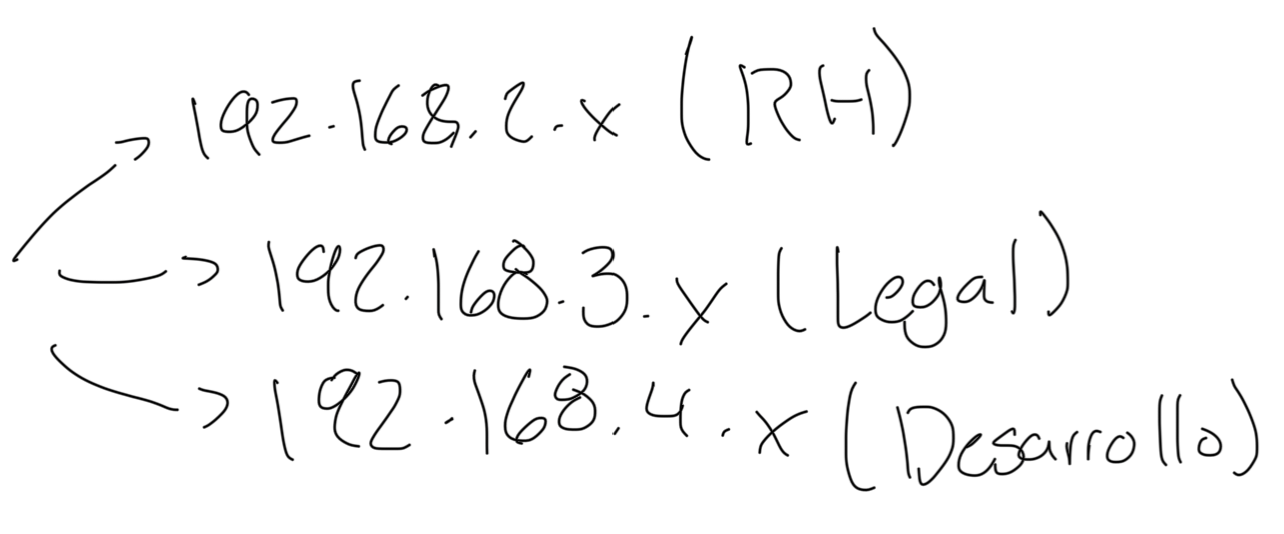 192.168.2.x (RH)
192.168.3.x (Legal)
192.168.4.x (Desarrollo)